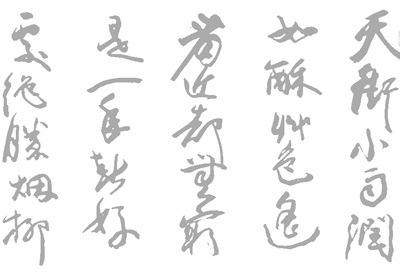 天街小雨潤
如酥艸色遙
看近却無最
是一年春好
處絕勝烟柳